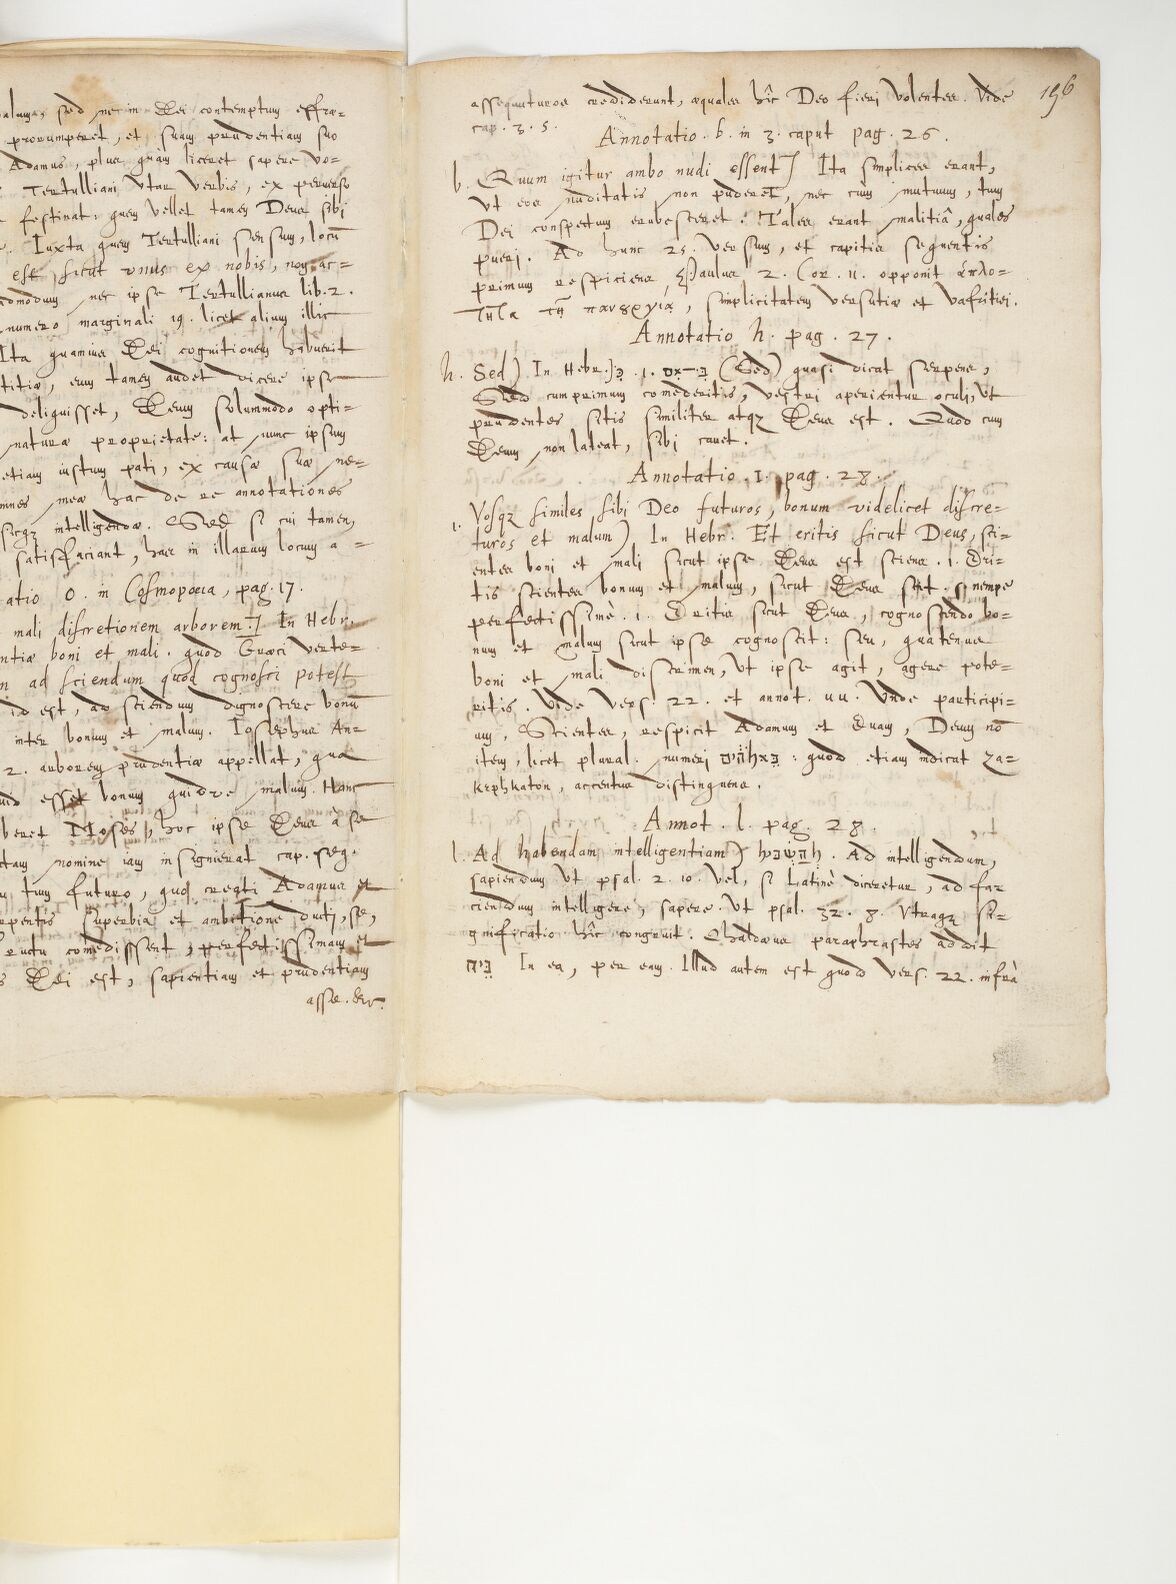 malum, sed nec in Dei contemptum effræ-
prorumperet, et suam prudentiam suo
Adamus, plus quam liceret sapere vo-
Tertulliani utar verbis, ex perverso
festinat: quem vellet tamen Deus sibi
Iuxta quem Tertulliani sensum, locū
est, sicut unus ex nobis, non ac-
admodum nec ipse Tertullianus lib. 2.
numero marginali 19. licet alium illic
Ita quamvis Dei cognitionem habuerit
titiæ, eum tamen audet dicere ipse
deliquisset, Deum solummodo opti-
naturæ proprietate: at nunc ipsum
etiam iustum pati, ex causæ suæ ne-
omnes meæ hac de re annotationes
sicqz intelligendæ. Sed si cui tamen,
satisfaciant, has in illarum locum a-
atio o. in Cosmopœia, pag. 17.
mali discretionem arborem] In Hebr.
ntiæ boni et mali. quod Græci verte-
n ad sciendum quod cognosci potest
id est, ad sciendum dignoscere bonū
inter bonum et malum. Iosephus An-
2. arborem prudentiæ appellat, qua
uid esset bonum quidve malum. Hanc
beret Moses, hoc ipse Deus à se
ctam nomine iam insignierat cap. seq.
tum futuro, quod creati Adamus et
rpentis superbia et ambitione ducti, se,
fructu comedissent, perfectissimam et
s Dei est, sapientiam et prudentiam
asse. &c.
196
assequuturos crediderunt, æquales hîc Deo fieri volentes. Vide
cap. 3. 5.
Annotatio. b. in 3. caput pag. 26.
b. Quum igitur ambo nudi essent] Ita simplices erant,
ut eos nuditatis non puderet, nec cum mutuum, tum
Dei conspectum erubesceret. Tales erant malitiâ, quales
pueri. Ad hunc 25. versum, et capitis sequentis
primum respiciens Paulus 2. Cor. 11. opponit ἁπλό-
τητα τῇ πανȣργίᾳ, simplicitatem versutiæ et vafritiei.
Annotatio h. pag. 27.
h. Sed) In Hebr. כִּ . i. כִּי־אם (Sed) quasi dicat serpens,
Sed cumprimum comederitis, vestri aperientur oculi, ut
prudentes sitis similiter atqz Deus est. Quod cum
Deum non lateat, sibi cavet.
Annotatio. I. pag. 28.
i. Vosqz similes sibi Deo futuros, bonum videlicet discre-
turos et malum) In Hebr. Et eritis sicut Deus, sci-
entes boni et mali sicut ipse Deus est sciens. i. Eri-
tis scientes bonum et malum, sicut Deus scit. s. nempe
perfectissimè. i. Eritis sicut Deus, cognoscendo bo-
num et malum sicut ipse cognoscit: seu, quatenus
boni et mali discrimen, ut ipse agit, agere pote-
ritis. Vide vers. 22. et annot. uu. Unde participi-
um, Scientes, respicit Adamum et Evam, Deum nō
item, licet plural. numeri כֵּאלֹהִים: quod etiam indicat Za-
kephkaton, accentus distinguens.
Annot. l. pag. 28.
l. Ad habendam intelligentiam) לְהַשְׂכִּיל. Ad intelligendum,
sapiendum ut psal. 2. 10. vel, si Latinè diceretur, ad fa-
ciendum intelligere, sapere. ut psal. 32. 8. Utraqz si-
gnificatio hîc congruit. Chaldæus paraphrastes addit
בֵּיהּ In ea, per eam. Illud autem est quod vers. 22. infrà